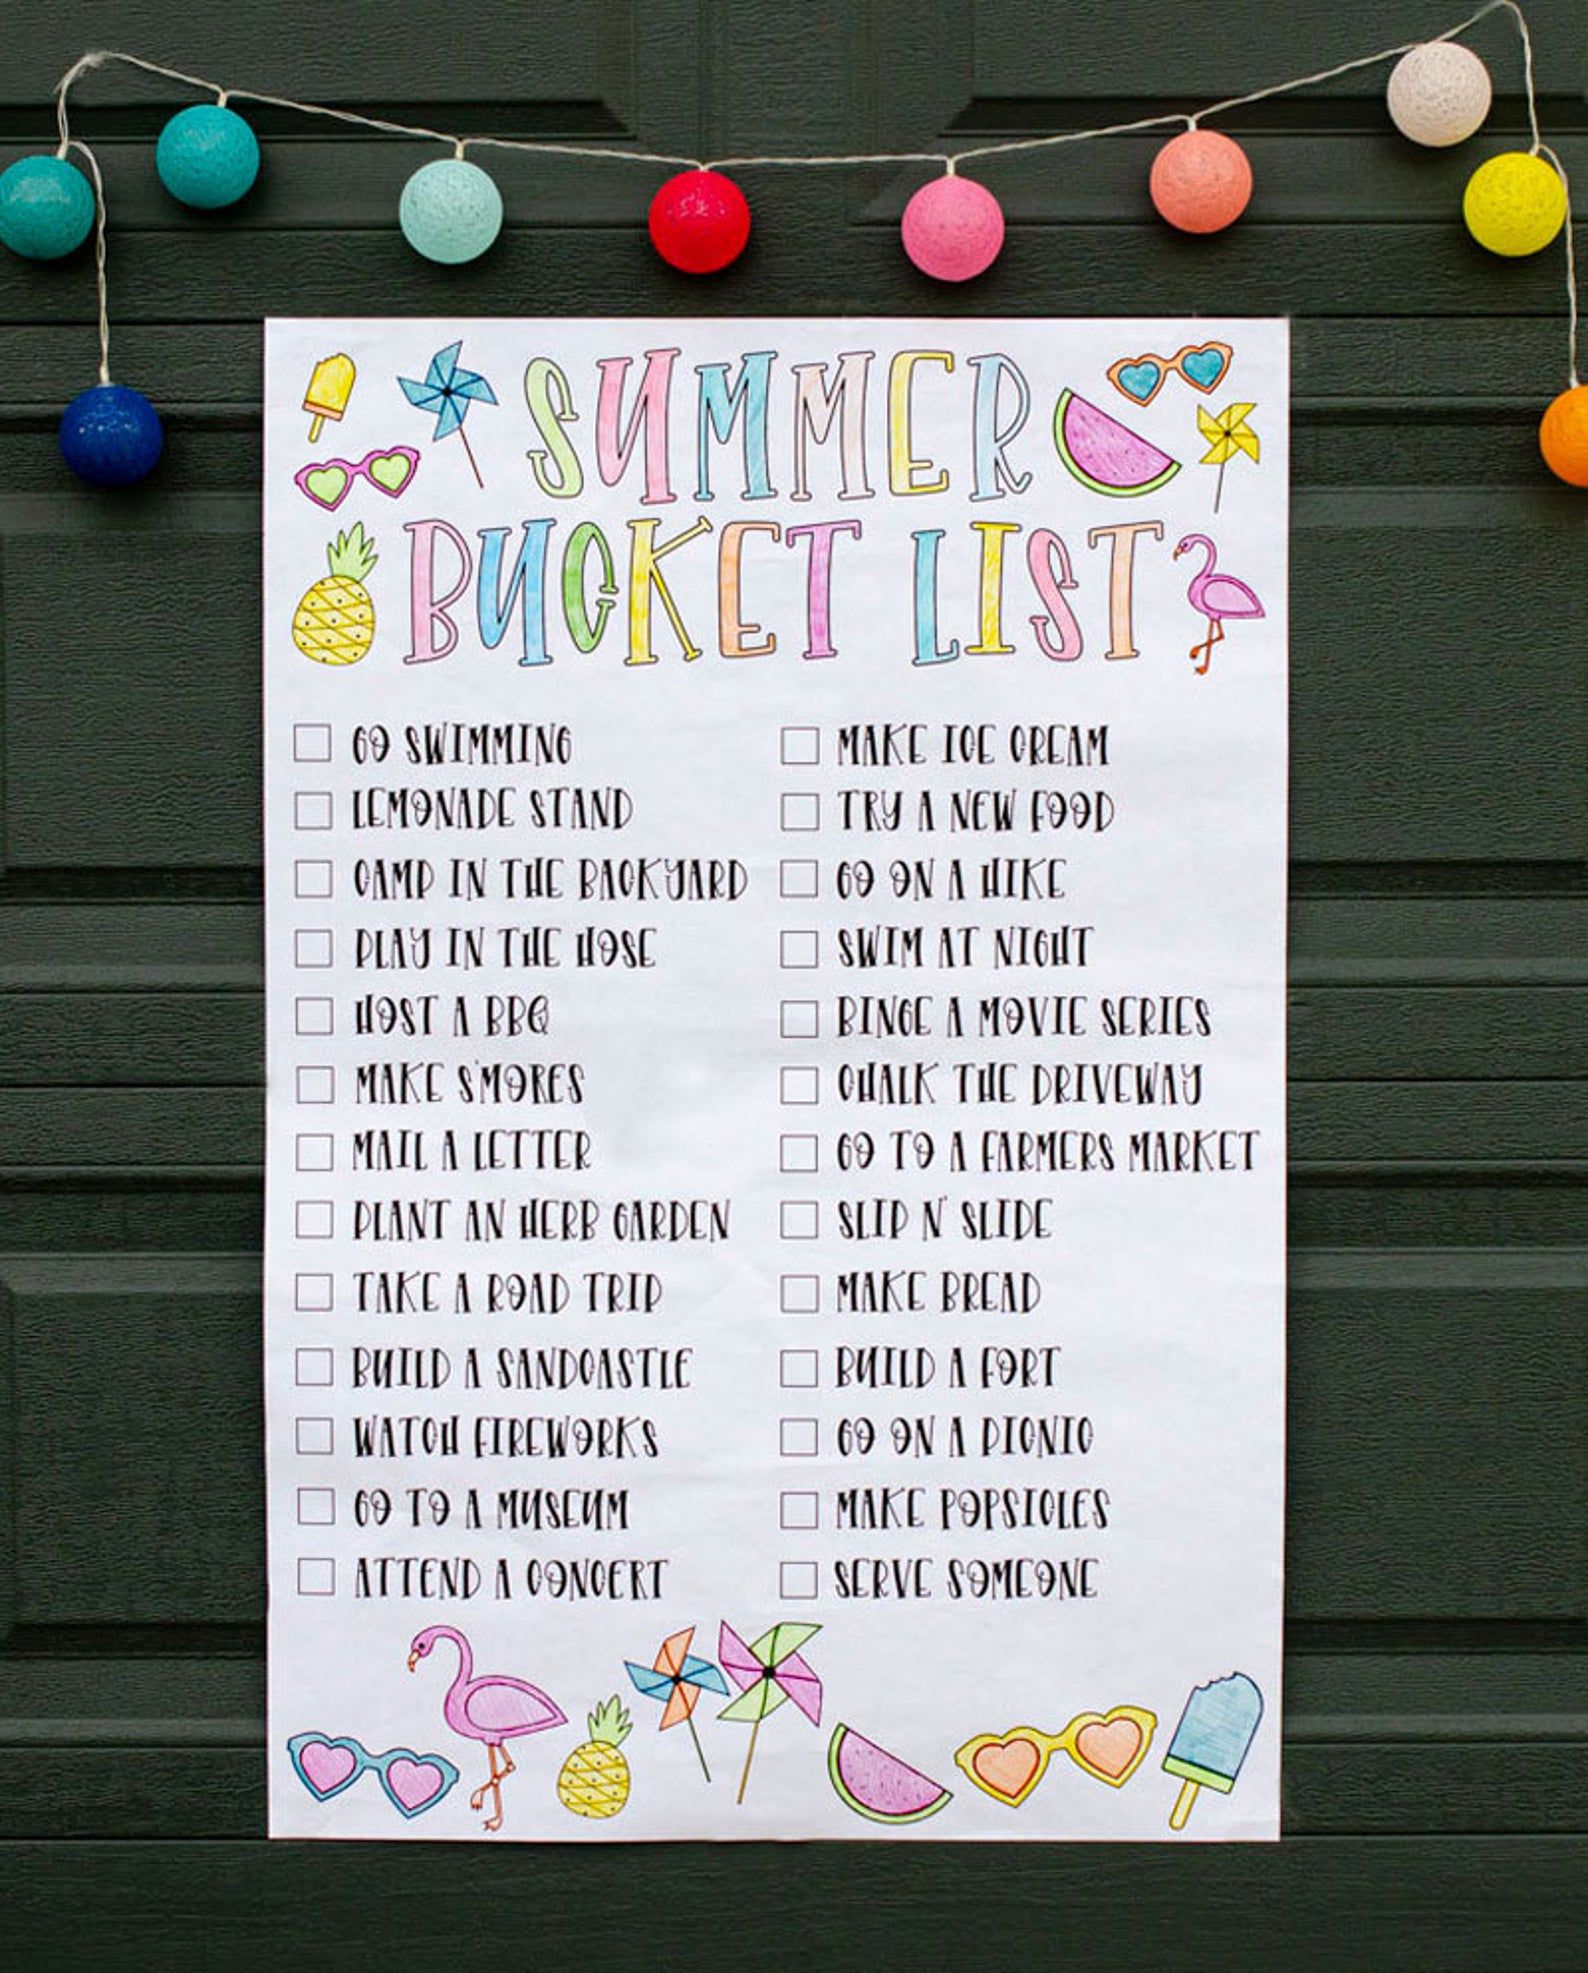 SUMMER
BUCKET LIST
GO SWIMMING
LEMONADE STAND
CAMP IN THE BACKYARD
PLAY IN THE HOSE
HOST A BBQ
MAKE S'MORES
MAIL A LETTER
PLANT AN HERB GARDEN
TAKE A ROAD TRIP
BUILD A SANDCASTLE
WATCH FIREWORKS
GO TO A MUSEUM
ATTEND A CONCERT
MAKE ICE CREAM
TRY A NEW FOOD
GO ON A HIKE
SWIM AT NIGHT
BINGE A MOVIE SERIES
CHALK THE DRIVEWAY
GO TO A FARMERS MARKET
SLIP N' SLIDE
MAKE BREAD
BUILD A FORT
GO ON A PICNIC
MAKE POPSICLES
SERVE SOMEONE